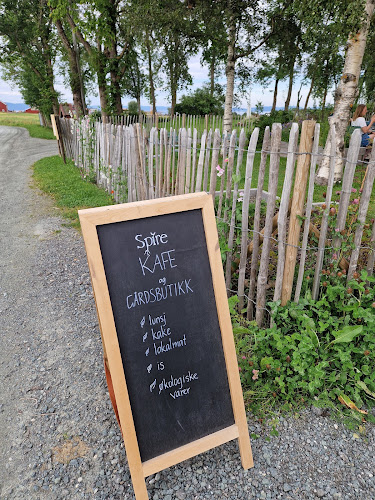 Spire
KAFE
og
GÅRDSBUTIKK
lunsj
kake
lokalmat
is
økologiske
varer